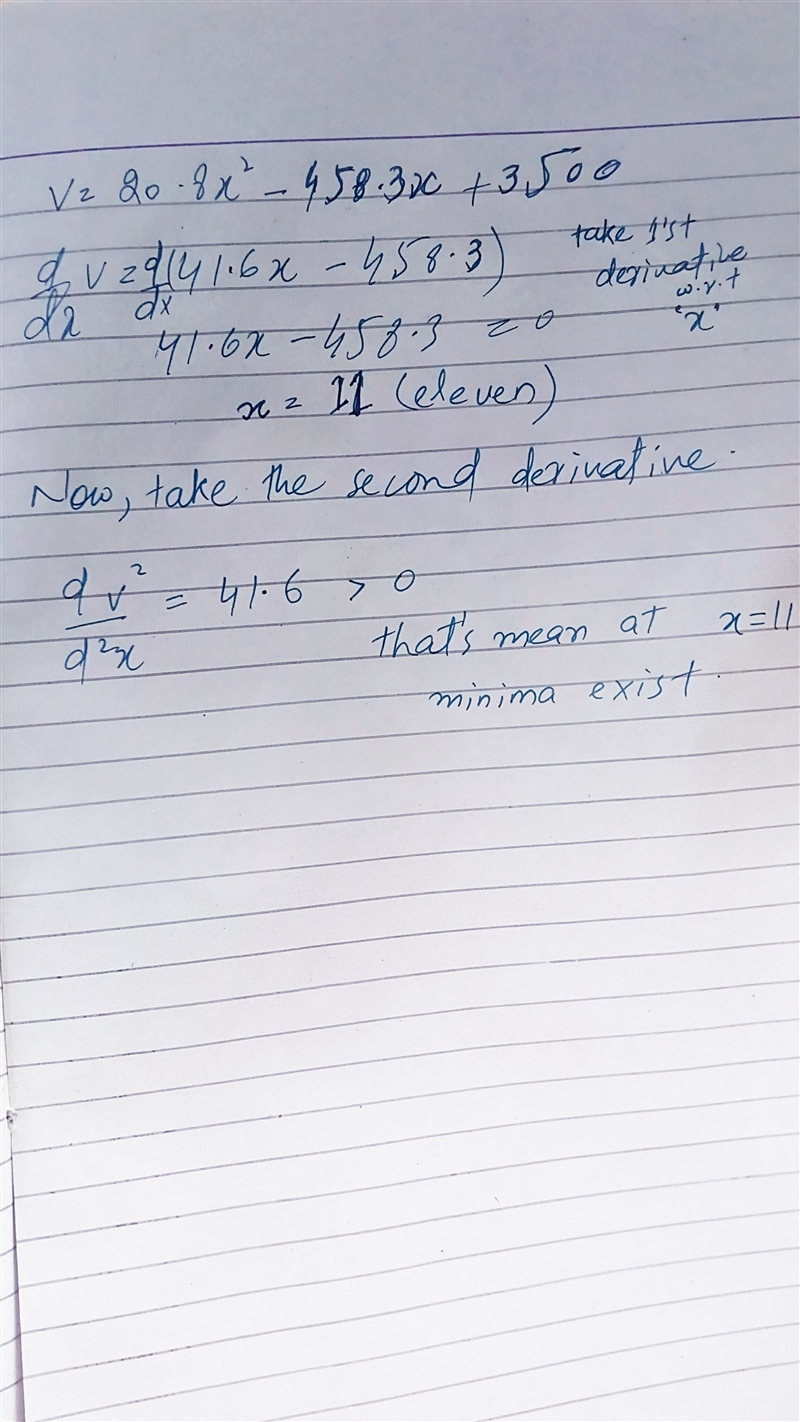 V = 20.8x² - 458.3x + 3500
d/dx V = d/dx (41.6x - 458.3) take 1'st derivative w.r.t 'x'
41.6x - 458.3 = 0
x = 11 (eleven)
Now, take the second derivative.
dv²/d²x = 41.6 > 0
that's mean at x=11
minima exist.